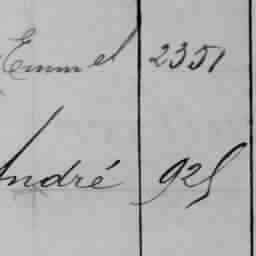 Emmel 2351
André 925